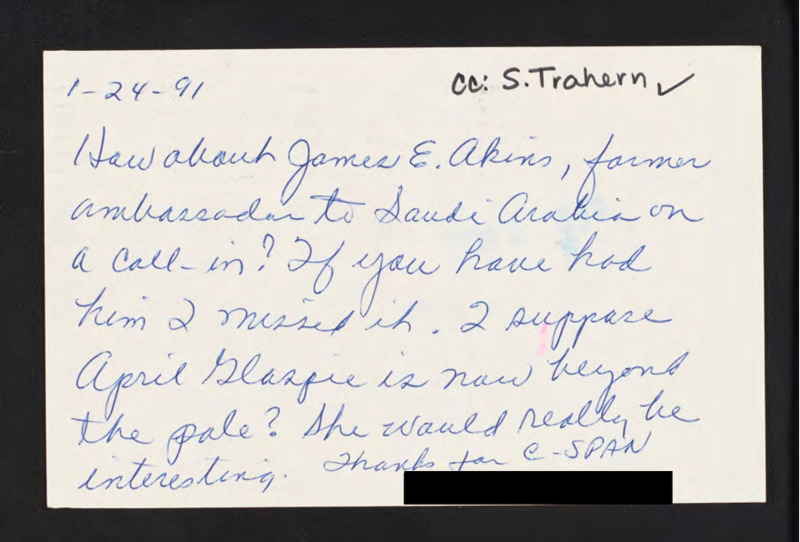 1-24-91
cc: S. Trahern ✓
How about James E. Akins, former
ambassador to Saudi Arabia on
a call-in? If you have had
him I missed it. I suppose
April Glaspie is now beyond
the pale? She would really be
interesting. Thanks for C-SPAN